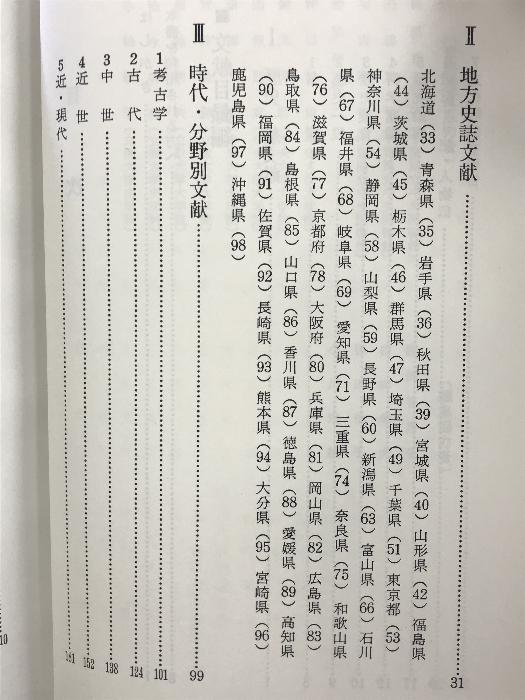 Ⅱ 地方史誌文献……31
北海道（33）青森県（35）岩手県（36）秋田県（39）宮城県（40）山形県（42）福島県
（44）茨城県（45）栃木県（46）群馬県（47）埼玉県（49）千葉県（51）東京都（53）
神奈川県（54）静岡県（58）山梨県（59）長野県（60）新潟県（63）富山県（66）石川
県（67）福井県（68）岐阜県（69）愛知県（71）三重県（74）奈良県（75）和歌山県
（76）滋賀県（77）京都府（78）大阪府（80）兵庫県（81）岡山県（82）広島県（83）
鳥取県（84）島根県（85）山口県（86）香川県（87）徳島県（88）愛媛県（89）高知県
（90）福岡県（91）佐賀県（92）長崎県（93）熊本県（94）大分県（95）宮崎県（96）
鹿児島県（97）沖縄県（98）
Ⅲ 時代・分野別文献……99
1 考古学……101
2 古代……124
3 中世……138
4 近世……152
5 近・現代……181
10